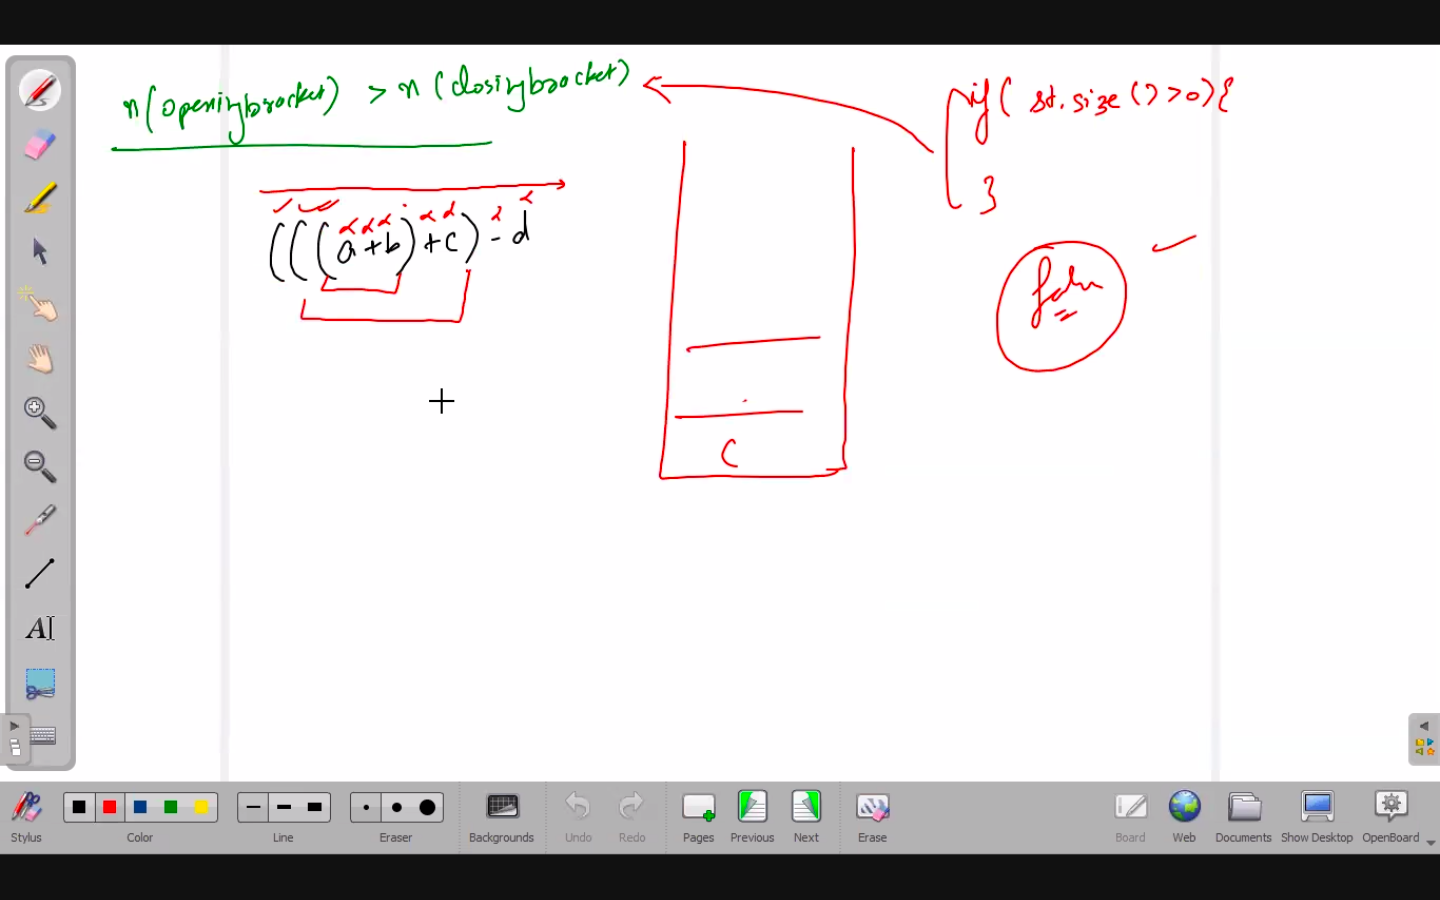 n(openingbracket) > n(closingbracket)
if( st.size()>0){
}
(((a+b)+c)-d
false
(
Stylus
Color
Line
Eraser
Backgrounds
Undo
Redo
Pages
Previous
Next
Erase
Board
Web
Documents
Show Desktop
OpenBoard